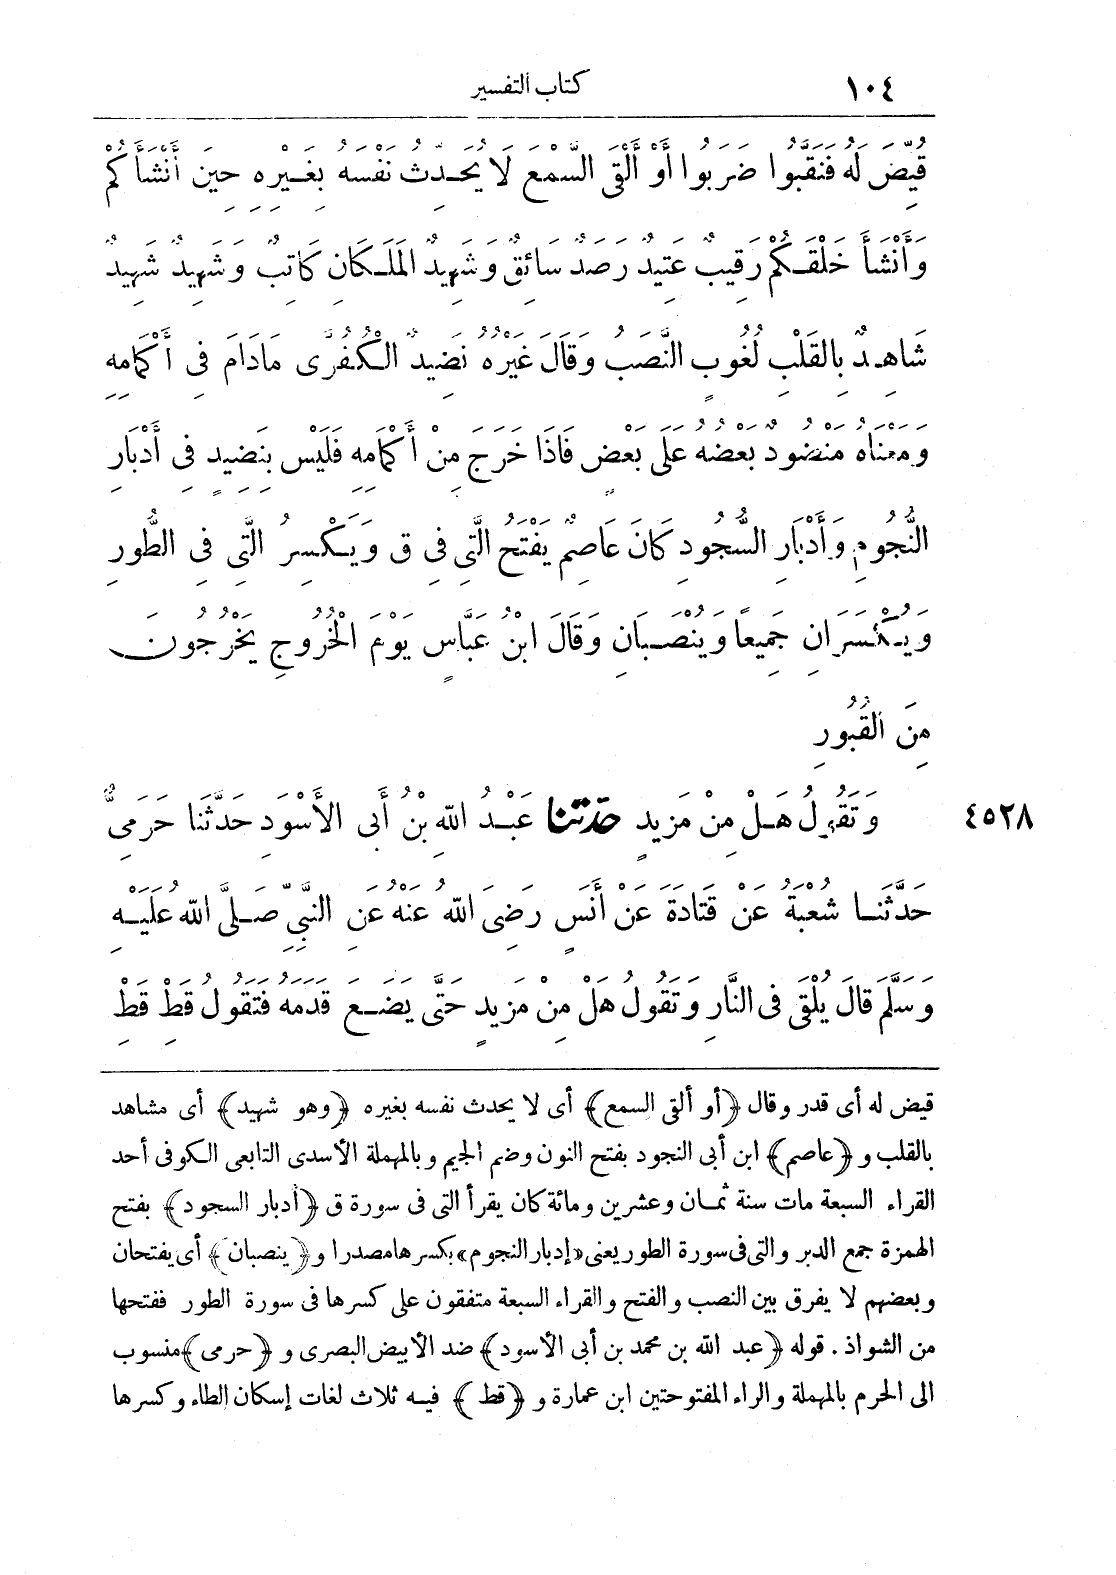 ١٠٤ كتاب التفسير
قُيِّضَ لَهُ فَنَقَّبُوا ضَرَبُوا أَوْ أَلْقَى السَّمْعَ لَا يُحَدِّثُ نَفْسَهُ بِغَيْرِهِ حِينَ أَنْشَأَكُمْ
وَأَنْشَأَ خَلْقَكُمْ رَقِيبٌ عَتِيدٌ رَصَدٌ سَائِقٌ وَشَهِيدٌ المَلَكَانِ كَاتِبٌ وَشَهِيدٌ شَهِيدٌ
شَاهِدٌ بِالقَلْبِ لُغُوبٍ النَّصَبُ وَقَالَ غَيْرُهُ نَضِيدٌ الْكُفُرَّى مَادَامَ فِى أَكْمَامِهِ
وَمَعْنَاهُ مَنْضُودٌ بَعْضُهُ عَلَى بَعْضٍ فَاذَا خَرَجَ مِنْ أَكْمَامِهِ فَلَيْسَ بِنَضِيدٍ فِى أَدْبَارِ
النُّجُومِ وَأَدْبَارِ السُّجُودِ كَانَ عَاصِمٌ يَفْتَحُ الَّتِى فِى ق وَيَكْسِرُ الَّتِى فِى الطُّورِ
وَيُكْسَرَانِ جَمِيعاً وَيُنْصَبَانِ وَقَالَ ابْنُ عَبَّاسٍ يَوْمَ الْخُرُوجِ يَخْرُجُونَ
مِنَ القُبُورِ
٤٥٢٨ وَتَقُولُ هَلْ مِنْ مَزِيدٍ حَدَّثَنَا عَبْدُ اللّٰهِ بْنُ أَبِى الأَسْوَدِ حَدَّثَنَا حَرَمِىٌّ
حَدَّثَنَا شُعْبَةُ عَنْ قَتَادَةَ عَنْ أَنَسٍ رَضِىَ اللّٰهُ عَنْهُ عَنِ النَّبِىِّ صَلَّى اللّٰهُ عَلَيْهِ
وَسَلَّمَ قَالَ يُلْقَى فِى النَّارِ وَتَقُولُ هَلْ مِنْ مَزِيدٍ حَتَّى يَضَعَ قَدَمَهُ فَتَقُولُ قَطْ قَطْ
قيض له أى قدر وقال ﴿أو ألقى السمع﴾ أى لا يحدث نفسه بغيره ﴿وهو شهيد﴾ أى مشاهد
بالقلب و﴿عاصم﴾ ابن أبى النجود بفتح النون وضم الجيم وبالمهملة الأسدى التابعى الكوفى أحد
القراء السبعة مات سنة ثمان وعشرين ومائة كان يقرأ التى فى سورة ق ﴿أدبار السجود﴾ بفتح
الهمزة جمع الدبر والتى فى سورة الطور يعنى «إدبار النجوم» بكسرها مصدرا و﴿ينصبان﴾ أى يفتحان
وبعضهم لا يفرق بين النصب والفتح والقراء السبعة متفقون على كسرها فى سورة الطور ففتحها
من الشواذ . قوله ﴿عبد الله بن محمد بن أبى الأسود﴾ ضد الأبيض البصرى و﴿حرمى﴾ منسوب
الى الحرم بالمهملة والراء المفتوحتين ابن عمارة و﴿قط﴾ فيه ثلاث لغات إسكان الطاء وكسرها